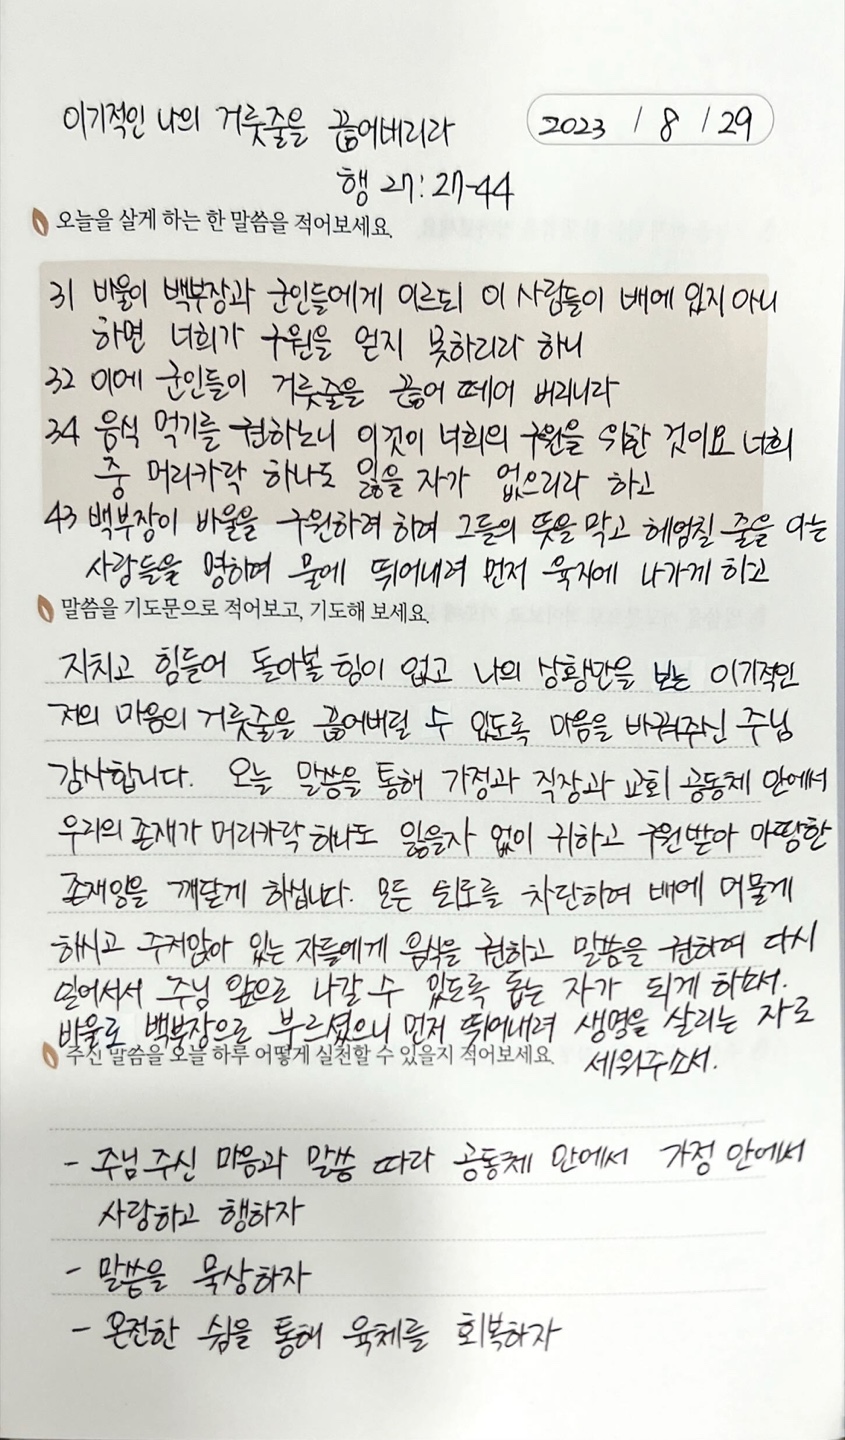 이기적인 나의 거룻줄을 끊어버리라
2023 / 8 / 29
행 27:27-44
오늘을 살게 하는 한 말씀을 적어보세요.
31 바울이 백부장과 군인들에게 이르되 이 사람들이 배에 있지 아니
하면 너희가 구원을 얻지 못하리라 하니
32 이에 군인들이 거룻줄을 끊어 떼어 버리니라
34 음식 먹기를 권하노니 이것이 너희의 구원을 위한 것이요 너희
중 머리카락 하나도 잃을 자가 없으리라 하고
43 백부장이 바울을 구원하려 하여 그들의 뜻을 막고 헤엄칠 줄을 아는
사람들을 명하여 물에 뛰어내려 먼저 육지에 나가게 하고
말씀을 기도문으로 적어보고, 기도해 보세요.
지치고 힘들어 돌아볼 힘이 없고 나의 상황만을 보는 이기적인
저의 마음의 거룻줄을 끊어버릴 수 있도록 마음을 바꿔주신 주님
감사합니다. 오늘 말씀을 통해 가정과 직장과 교회 공동체 안에서
우리의 존재가 머리카락 하나도 잃을자 없이 귀하고 구원받아 마땅한
존재임을 깨닫게 하십니다. 모든 퇴로를 차단하여 배에 머물게
하시고 주저앉아 있는 자들에게 음식을 권하고 말씀을 권하여 다시
일어서서 주님 앞으로 나갈 수 있도록 돕는 자가 되게 하소서.
바울로 백부장으로 부르셨으니 먼저 뛰어내려 생명을 살리는 자로
세워주소서.
주신 말씀을 오늘 하루 어떻게 실천할 수 있을지 적어보세요.
- 주님 주신 마음과 말씀 따라 공동체 안에서 가정 안에서
사랑하고 행하자
- 말씀을 묵상하자
- 온전한 쉼을 통해 육체를 회복하자